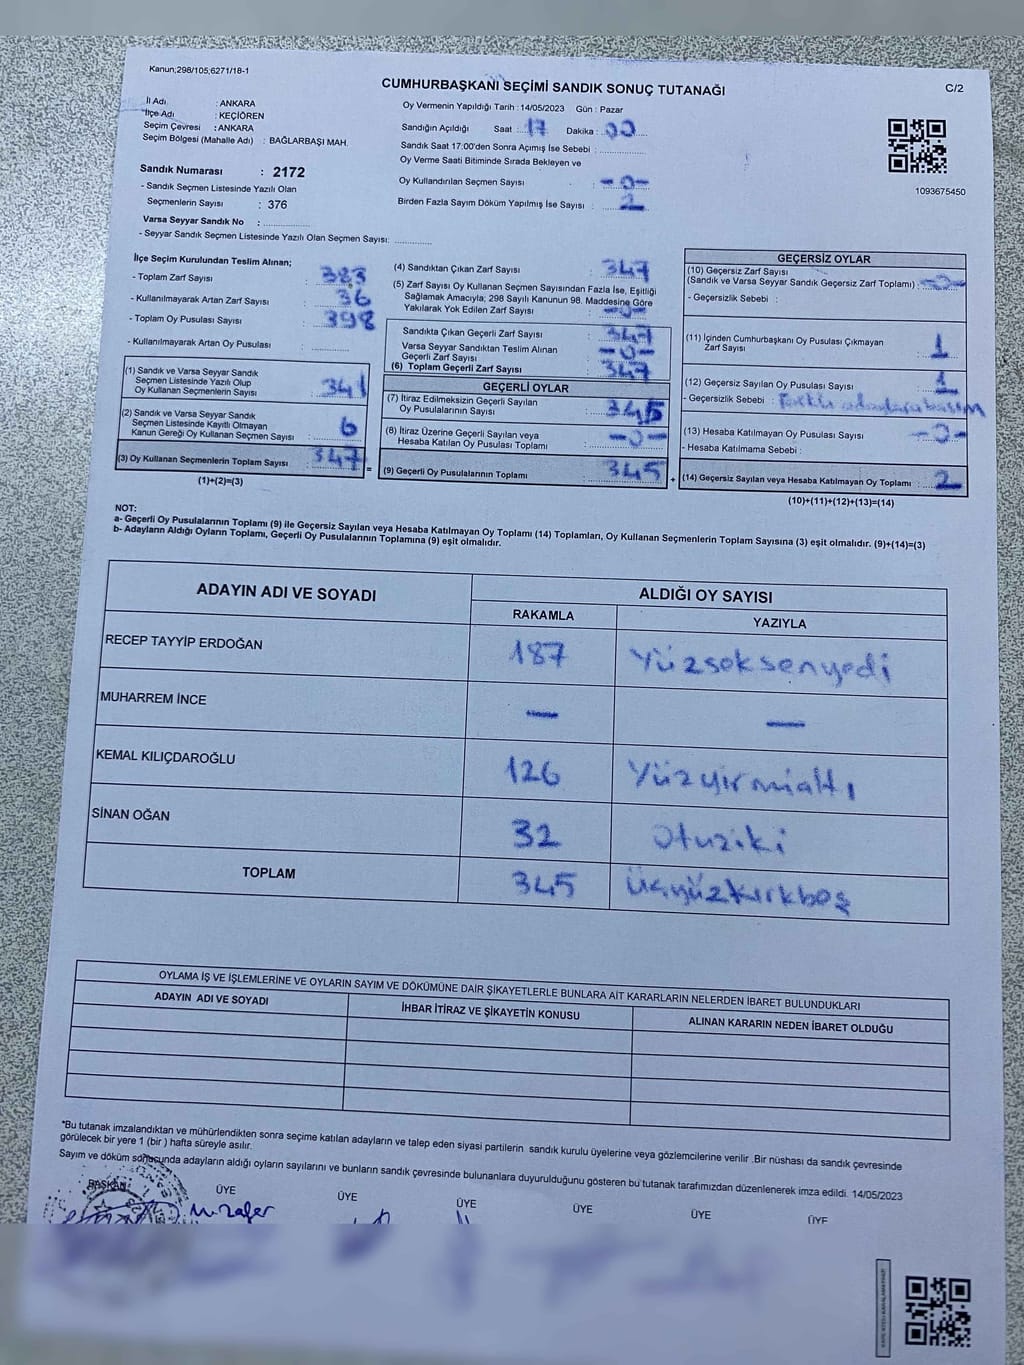 Kanun;298/105;6271/18-1
CUMHURBAŞKANI SEÇİMİ SANDIK SONUÇ TUTANAĞI
C/2
İl Adı : ANKARA
İlçe Adı : KEÇİÖREN
Seçim Çevresi : ANKARA
Seçim Bölgesi (Mahalle Adı) : BAĞLARBAŞI MAH.
Sandık Numarası : 2172
- Sandık Seçmen Listesinde Yazılı Olan
Seçmenlerin Sayısı : 376
Varsa Seyyar Sandık No :
- Seyyar Sandık Seçmen Listesinde Yazılı Olan Seçmen Sayısı:
Oy Vermenin Yapıldığı Tarih : 14/05/2023 Gün : Pazar
Sandığın Açıldığı Saat : 17 Dakika : 00
Sandık Saat 17:00'den Sonra Açımış İse Sebebi :
Oy Verme Saati Bitiminde Sırada Bekleyen ve
Oy Kullandırılan Seçmen Sayısı : -0-
Birden Fazla Sayım Döküm Yapılmış İse Sayısı : 2
1093675450
İlçe Seçim Kurulundan Teslim Alınan;
- Toplam Zarf Sayısı : 383
- Kullanılmayarak Artan Zarf Sayısı : 36
- Toplam Oy Pusulası Sayısı : 398
- Kullanılmayarak Artan Oy Pusulası :
(1) Sandık ve Varsa Seyyar Sandık
Seçmen Listesinde Yazılı Olup
Oy Kullanan Seçmenlerin Sayısı : 341
(2) Sandık ve Varsa Seyyar Sandık
Seçmen Listesinde Kayıtlı Olmayan
Kanun Gereği Oy Kullanan Seçmen Sayısı : 6
(3) Oy Kullanan Seçmenlerin Toplam Sayısı : 347
(1)+(2)=(3)
=
(4) Sandıktan Çıkan Zarf Sayısı : 347
(5) Zarf Sayısı Oy Kullanan Seçmen Sayısından Fazla İse, Eşitliği
Sağlamak Amacıyla; 298 Sayılı Kanunun 98. Maddesine Göre
Yakılarak Yok Edilen Zarf Sayısı : -0-
Sandıkta Çıkan Geçerli Zarf Sayısı : 347
Varsa Seyyar Sandıktan Teslim Alınan
Geçerli Zarf Sayısı : -0-
(6) Toplam Geçerli Zarf Sayısı : 347
GEÇERLİ OYLAR
(7) İtiraz Edilmeksizin Geçerli Sayılan
Oy Pusulalarının Sayısı : 345
(8) İtiraz Üzerine Geçerli Sayılan veya
Hesaba Katılan Oy Pusulası Toplamı : -0-
(9) Geçerli Oy Pusulalarının Toplamı : 345
+
GEÇERSİZ OYLAR
(10) Geçersiz Zarf Sayısı
(Sandık ve Varsa Seyyar Sandık Geçersiz Zarf Toplamı) : -0-
- Geçersizlik Sebebi :
(11) İçinden Cumhurbaşkanı Oy Pusulası Çıkmayan
Zarf Sayısı : 1
(12) Geçersiz Sayılan Oy Pusulası Sayısı : 1
- Geçersizlik Sebebi : Farklı adaylara basım
(13) Hesaba Katılmayan Oy Pusulası Sayısı : -0-
- Hesaba Katılmama Sebebi :
(14) Geçersiz Sayılan veya Hesaba Katılmayan Oy Toplamı : 2
(10)+(11)+(12)+(13)=(14)
NOT:
a- Geçerli Oy Pusulalarının Toplamı (9) ile Geçersiz Sayılan veya Hesaba Katılmayan Oy Toplamı (14) Toplamları, Oy Kullanan Seçmenlerin Toplam Sayısına (3) eşit olmalıdır. (9)+(14)=(3)
b- Adayların Aldığı Oyların Toplamı, Geçerli Oy Pusulalarının Toplamına (9) eşit olmalıdır.
ADAYIN ADI VE SOYADI
ALDIĞI OY SAYISI
RAKAMLA YAZIYLA
RECEP TAYYİP ERDOĞAN 187 Yüzseksenyedi
MUHARREM İNCE — —
KEMAL KILIÇDAROĞLU 126 Yüzyirmialtı
SİNAN OĞAN 32 otuziki
TOPLAM 345 Üçyüzkırkbeş
OYLAMA İŞ VE İŞLEMLERİNE VE OYLARIN SAYIM VE DÖKÜMÜNE DAİR ŞİKAYETLERLE BUNLARA AİT KARARLARIN NELERDEN İBARET BULUNDUKLARI
ADAYIN ADI VE SOYADI İHBAR İTİRAZ VE ŞİKAYETİN KONUSU ALINAN KARARIN NEDEN İBARET OLDUĞU
*Bu tutanak imzalandıktan ve mühürlendikten sonra seçime katılan adayların ve talep eden siyasi partilerin sandık kurulu üyelerine veya gözlemcilerine verilir .Bir nüshası da sandık çevresinde
görülecek bir yere 1 (bir ) hafta süreyle asılır.
Sayım ve döküm sonucunda adayların aldığı oyların sayılarını ve bunların sandık çevresinde bulunanlara duyurulduğunu gösteren bu tutanak tarafımızdan düzenlenerek imza edildi. 14/05/2023
BAŞKAN ÜYE ÜYE ÜYE ÜYE ÜYE ÜYE
M. Zafer